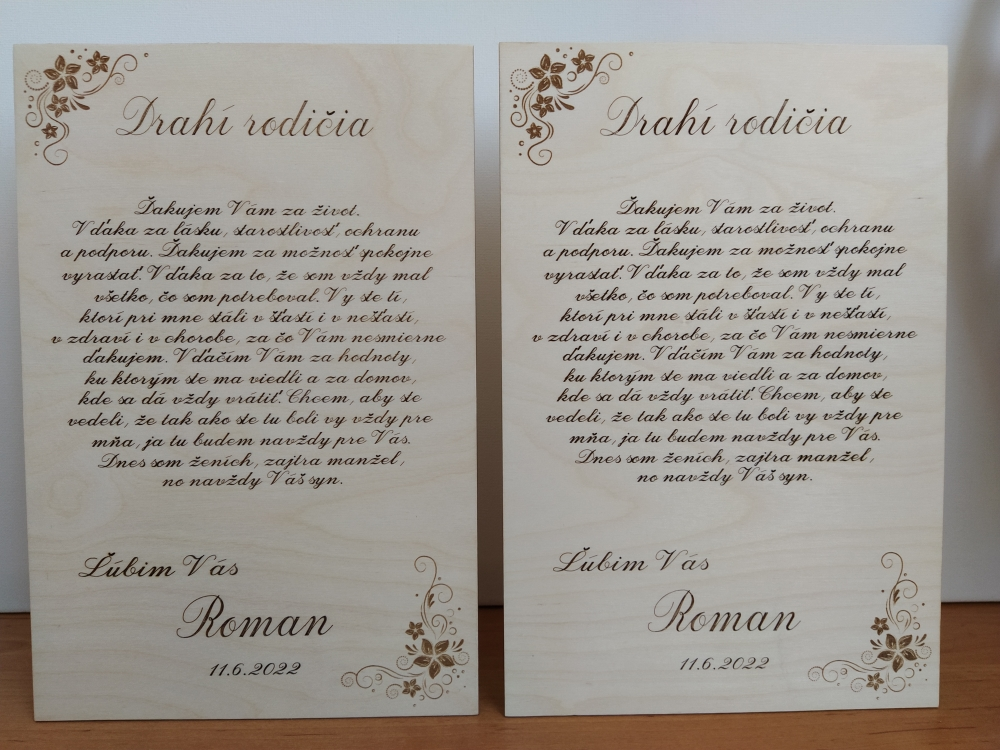 Drahí rodičia
Ďakujem Vám za život.
Vďaka za lásku, starostlivosť, ochranu
a podporu. Ďakujem za možnosť spokojne
vyrastať. Vďaka za to, že som vždy mal
všetko, čo som potreboval. Vy ste tí,
ktorí pri mne stáli v šťastí i v nešťastí,
v zdraví i v chorobe, za čo Vám nesmierne
ďakujem. Vďačím Vám za hodnoty,
ku ktorým ste ma viedli a za domov,
kde sa dá vždy vrátiť. Chcem, aby ste
vedeli, že tak ako ste tu boli vy vždy pre
mňa, ja tu budem navždy pre Vás.
Dnes som ženích, zajtra manžel,
no navždy Váš syn.
Ľúbim Vás
Roman
11.6.2022
Drahí rodičia
Ďakujem Vám za život.
Vďaka za lásku, starostlivosť, ochranu
a podporu. Ďakujem za možnosť spokojne
vyrastať. Vďaka za to, že som vždy mal
všetko, čo som potreboval. Vy ste tí,
ktorí pri mne stáli v šťastí i v nešťastí,
v zdraví i v chorobe, za čo Vám nesmierne
ďakujem. Vďačím Vám za hodnoty,
ku ktorým ste ma viedli a za domov,
kde sa dá vždy vrátiť. Chcem, aby ste
vedeli, že tak ako ste tu boli vy vždy pre
mňa, ja tu budem navždy pre Vás.
Dnes som ženích, zajtra manžel,
no navždy Váš syn.
Ľúbim Vás
Roman
11.6.2022